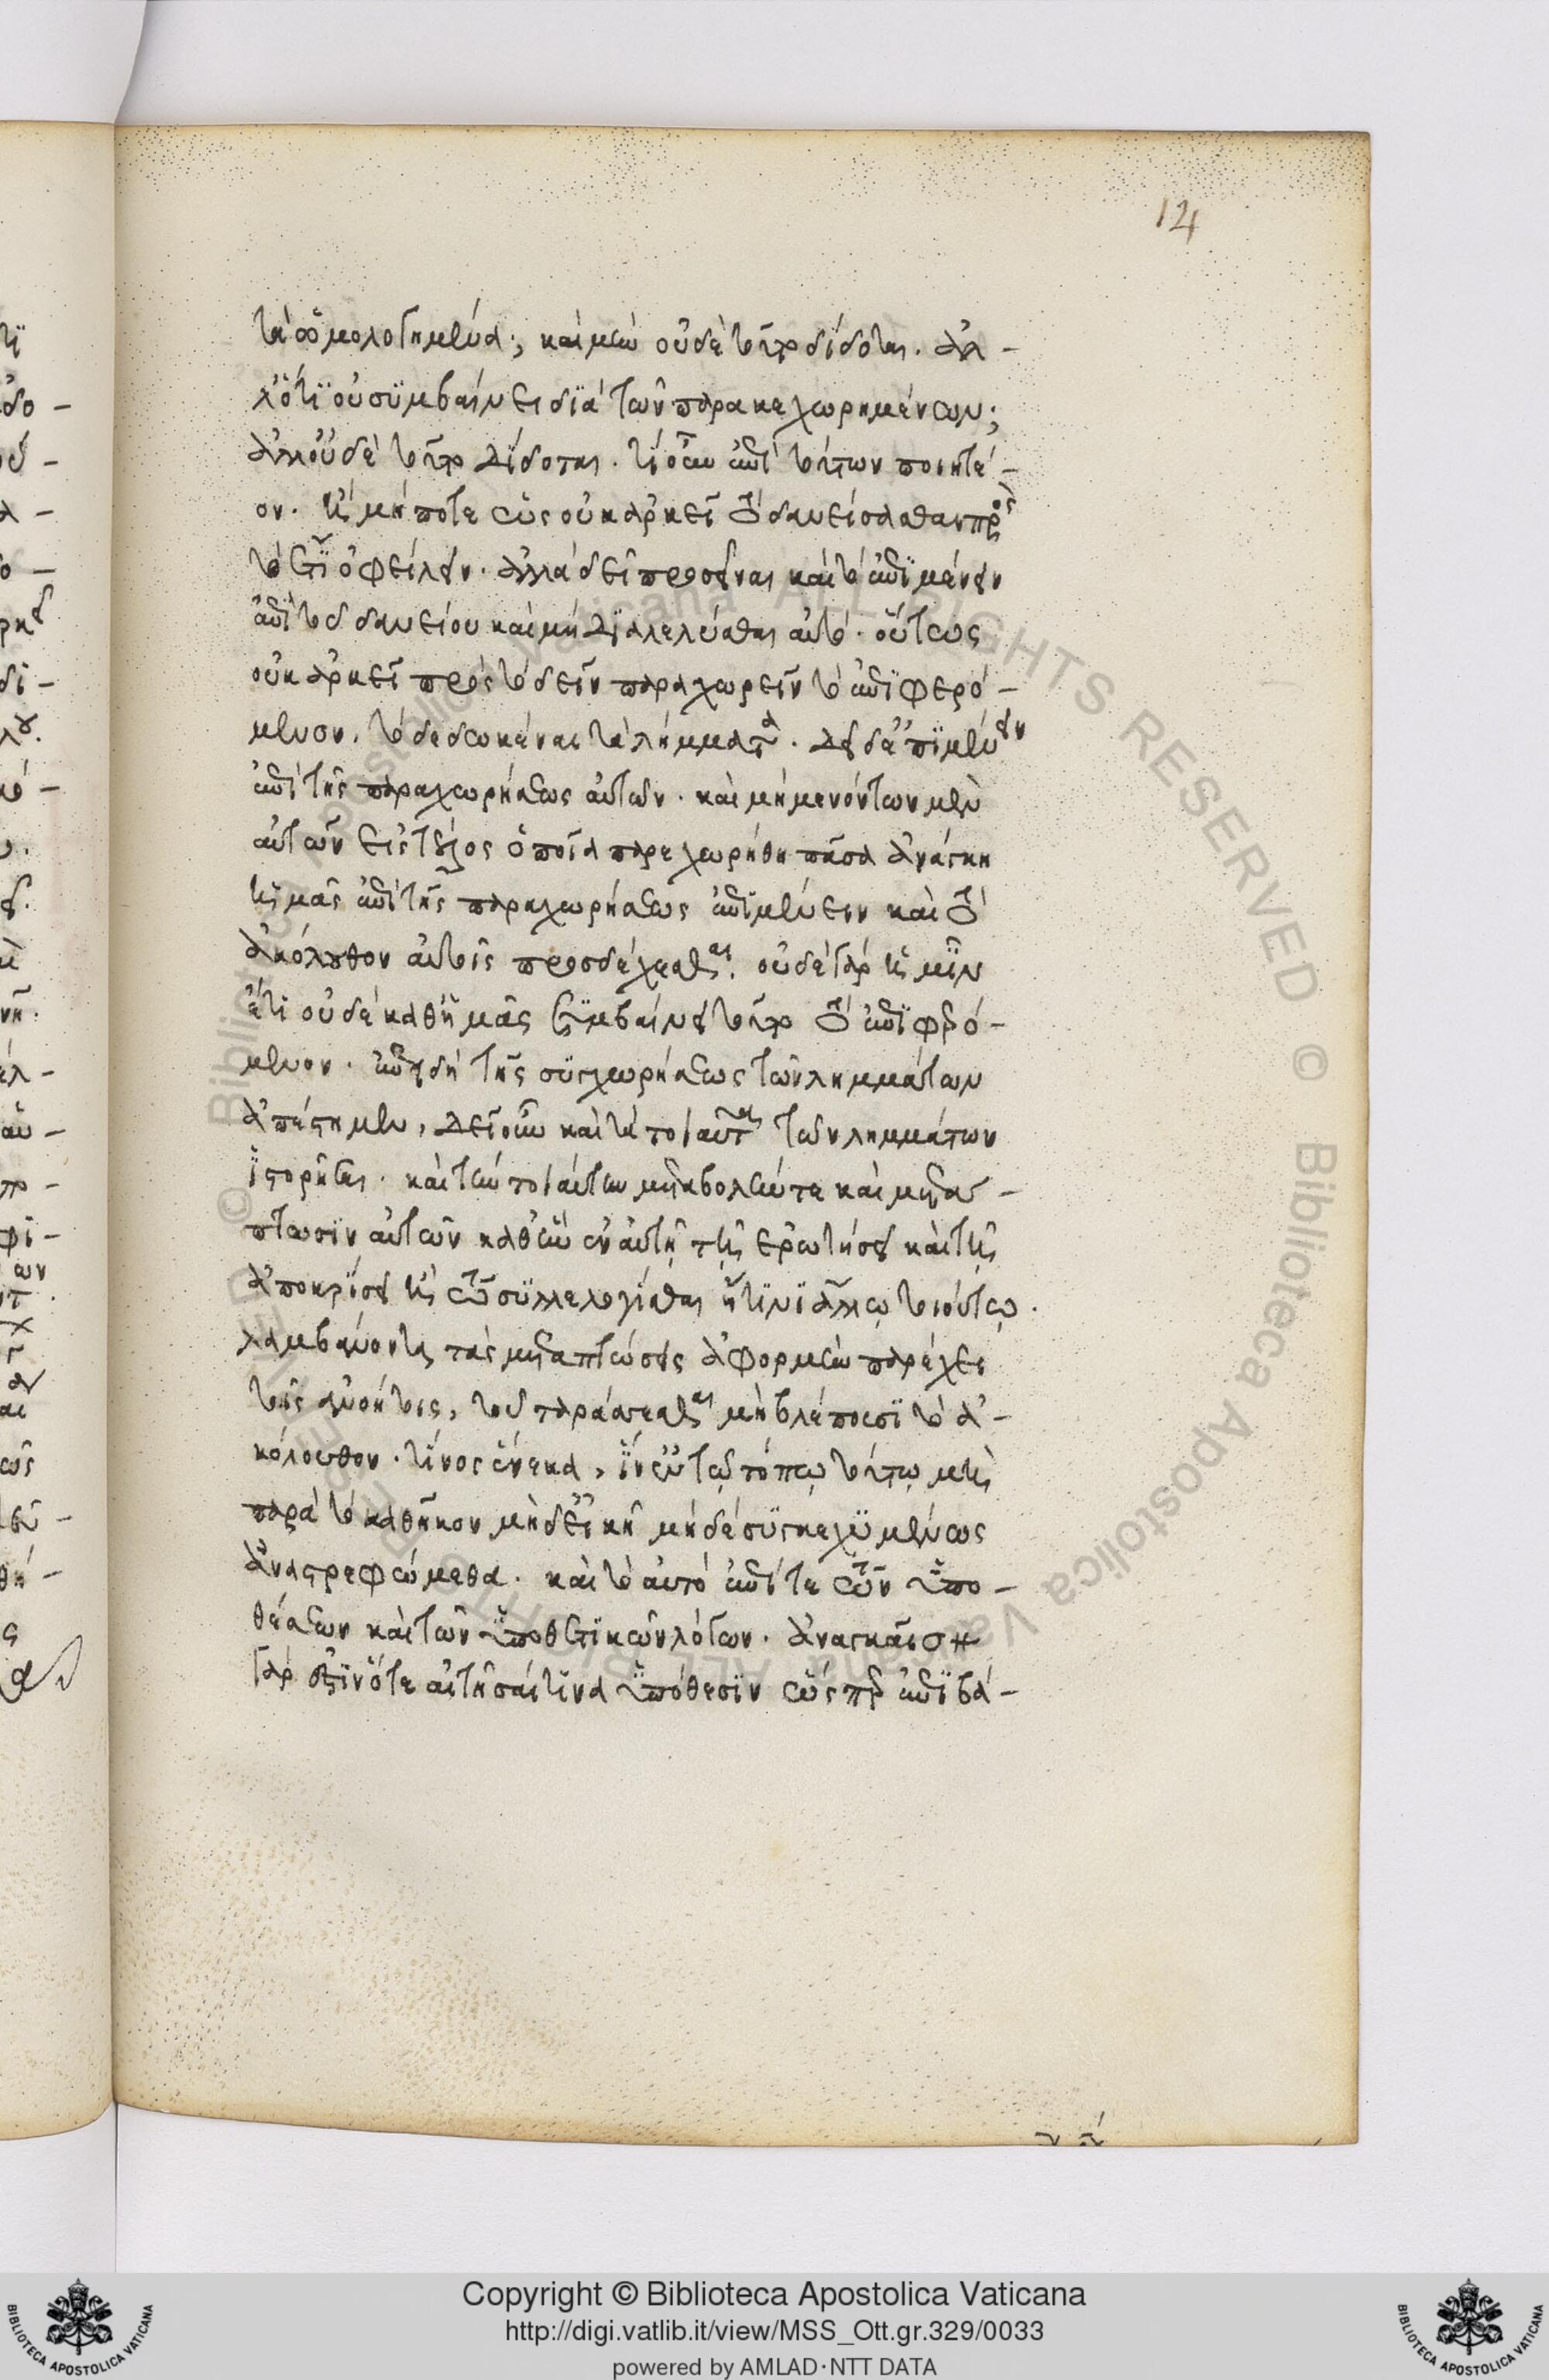 124
τὰ ὡμολογημένα; καὶ μὴν οὐδὲ τοῦτο δίδοται. ἀλ-
λ' ὅτι οὐ συμβαίνει διὰ τῶν παρακεχωρημένων;
ἀλλ' οὐδὲ τοῦτο δίδοται. τί οὖν ἐπὶ τούτων ποιητέ-
ον. ἢ μήποτε ὡς οὐκ ἀρκεῖ τὸ δανείσασθαι πρὸς
τὸ ἔτι ὀφείλειν. ἀλλὰ δεῖ προσεῖναι καὶ τὸ ἐπιμένειν
ἐπὶ τοῦ δανείου καὶ μὴ διαλελύσθαι αὐτό. οὕτως
οὐκ ἀρκεῖ πρὸς τὸ δεῖν παραχωρεῖν τὸ ἐπιφερό-
μενον. τὸ δεδωκέναι τὰ λήμματα. δεῖ δὲ ἐπιμένειν
ἐπὶ τῆς παραχωρήσεως αὐτῶν. καὶ μὴ μενόντων μὲν
αὐτῶν εἰς τέλος ὁποῖα παρεχωρήθη πᾶσα ἀνάγκη
ἡμᾶς ἐπὶ τῆς παραχωρήσεως ἐπιμένειν καὶ τὸ
ἀκόλουθον αὐτοῖς προσδέχεσθαι. οὐδὲ γὰρ ἡμῖν
ἔτι οὐδὲ καθ' ἡμᾶς συμβαίνει τοῦτο τὸ ἐπιφερό-
μενον. ἐπειδὴ τῆς συγχωρήσεως τῶν λημμάτων
ἀπέστημεν, δεῖ οὖν καὶ τὰ τοιαῦτα τῶν λημμάτων
ἱστορῆσαι. καὶ τὴν τοιαύτην μεταβολήν τε καὶ μετά-
πτωσιν αὐτῶν καθ' ἣν ἐν αὐτῇ τῇ ἐρωτήσει καὶ τῇ
ἀποκρίσει ἢ τῷ συλλελογίσθαι ἤ τινι ἄλλῳ τοιούτῳ.
λαμβάνοντα τὰς μεταπτώσεις ἀφορμὴν παρέχει
τοῖς ἀνοήτοις, τοῦ ταράσσεσθαι μὴ βλέπουσι τὸ ἀ-
κόλουθον. τίνος ἕνεκα, ἵν' ἐν τῷ τόπῳ τούτῳ μὴ
παρὰ τὸ καθῆκον μὴδ' εἰκῆ μηδὲ συγκεχυμένως
ἀναστρεφώμεθα. καὶ τὸ αὐτὸ ἐπί τε τῶν ὑπο-
θέσεων καὶ τῶν ὑποθετικῶν λόγων. ἀναγκαῖον
γὰρ ἔστιν ὅτε αἰτῆσαί τινα ὑπόθεσιν ὥσπερ ἐπιβά-
Copyright © Biblioteca Apostolica Vaticana
http://digi.vatlib.it/view/MSS_Ott.gr.329/0033
powered by AMLAD·NTT DATA